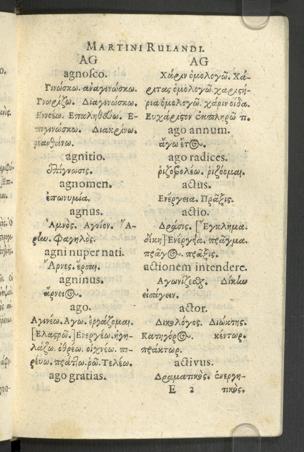 MARTINI RULANDI.
AG
agnosco.
Γινώσκω. ἀναγινώσκω.
Γνωρίζω. Διαγινώσκω.
Ἐννοέω. Ἐπαληθεύω. Ἐ-
πιγινώσκω. Διακρίνω.
μανθάνω.
agnitio.
ἐπίγνωσις.
agnomen.
ἐπωνυμία.
agnus.
Ἀμνὸς. Ἀρνίον. Ἀ-
agni nuper nati.
Ἄρνες.
agninus.
ἄρνειος.
ago.
Ἀγινέω. Ἄγω. ἐργάζομαι.
[Ἐλασρῶ.] Ἐνεργέω.
Τελέω.
ago gratias.
AG
Χάριν ὁμολογῶ. Χά-
ριτας ὁμολογῶ. χαριςή-
ρια ὁμολογῶ. χάριν οἶδα.
ago annum.
ἄγω ἔτος.
ago radices.
ῥιζοβολέω. ῥιζόομαι.
actus.
Ἐνέργεια. Πρᾶξις.
actio.
Δρᾶσις. [Ἔγκλημα.
δίκη] Ἐνέργεια. πρᾶγμα.
πρᾶξις.
actionem intendere.
Ἀγωνίζεσθαι. Δίκην
εἰσάγειν.
actor.
Δικολόγος. Διώκτης.
Κατήγορος. κέντωρ.
πράκτωρ.
activus.
Δραματικὸς. ἐνεργη-
E 2 τικὸς.